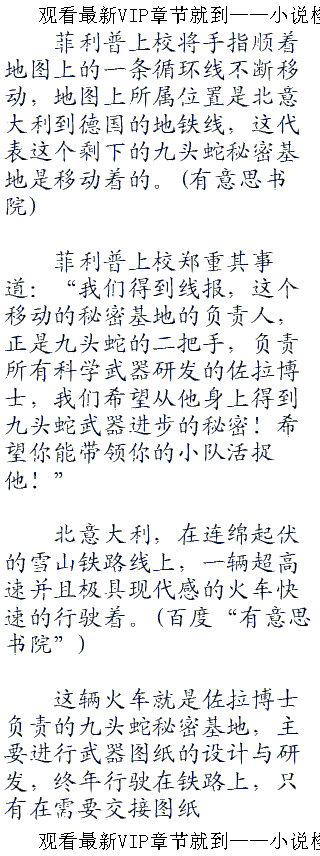 观看最新VIP章节就到——小说检
菲利普上校将手指顺着
地图上的一条循环线不断移
动，地图上所属位置是北意
大利到德国的地铁线，这代
表这个剩下的九头蛇秘密基
地是移动着的。(有意思书
院)
菲利普上校郑重其事
道：“我们得到线报，这个
移动的秘密基地的负责人，
正是九头蛇的二把手，负责
所有科学武器研发的佐拉博
士，我们希望从他身上得到
九头蛇武器进步的秘密！希
望你能带领你的小队活捉
他！”
北意大利，在连绵起伏
的雪山铁路线上，一辆超高
速并且极具现代感的火车快
速的行驶着。(百度“有意思
书院”)
这辆火车就是佐拉博士
负责的九头蛇秘密基地，主
要进行武器图纸的设计与研
发，终年行驶在铁路上，只
有在需要交接图纸
观看最新VIP章节就到——小说检